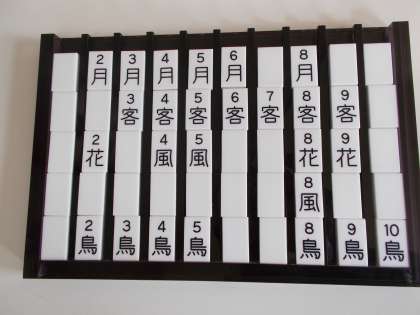 2月 3月 4月 5月 6月 8月
3客 4客 5客 6客 7客 8客 9客
2花 4風 5風 8花 9花
8風
2鳥 3鳥 4鳥 5鳥 8鳥 9鳥 10鳥